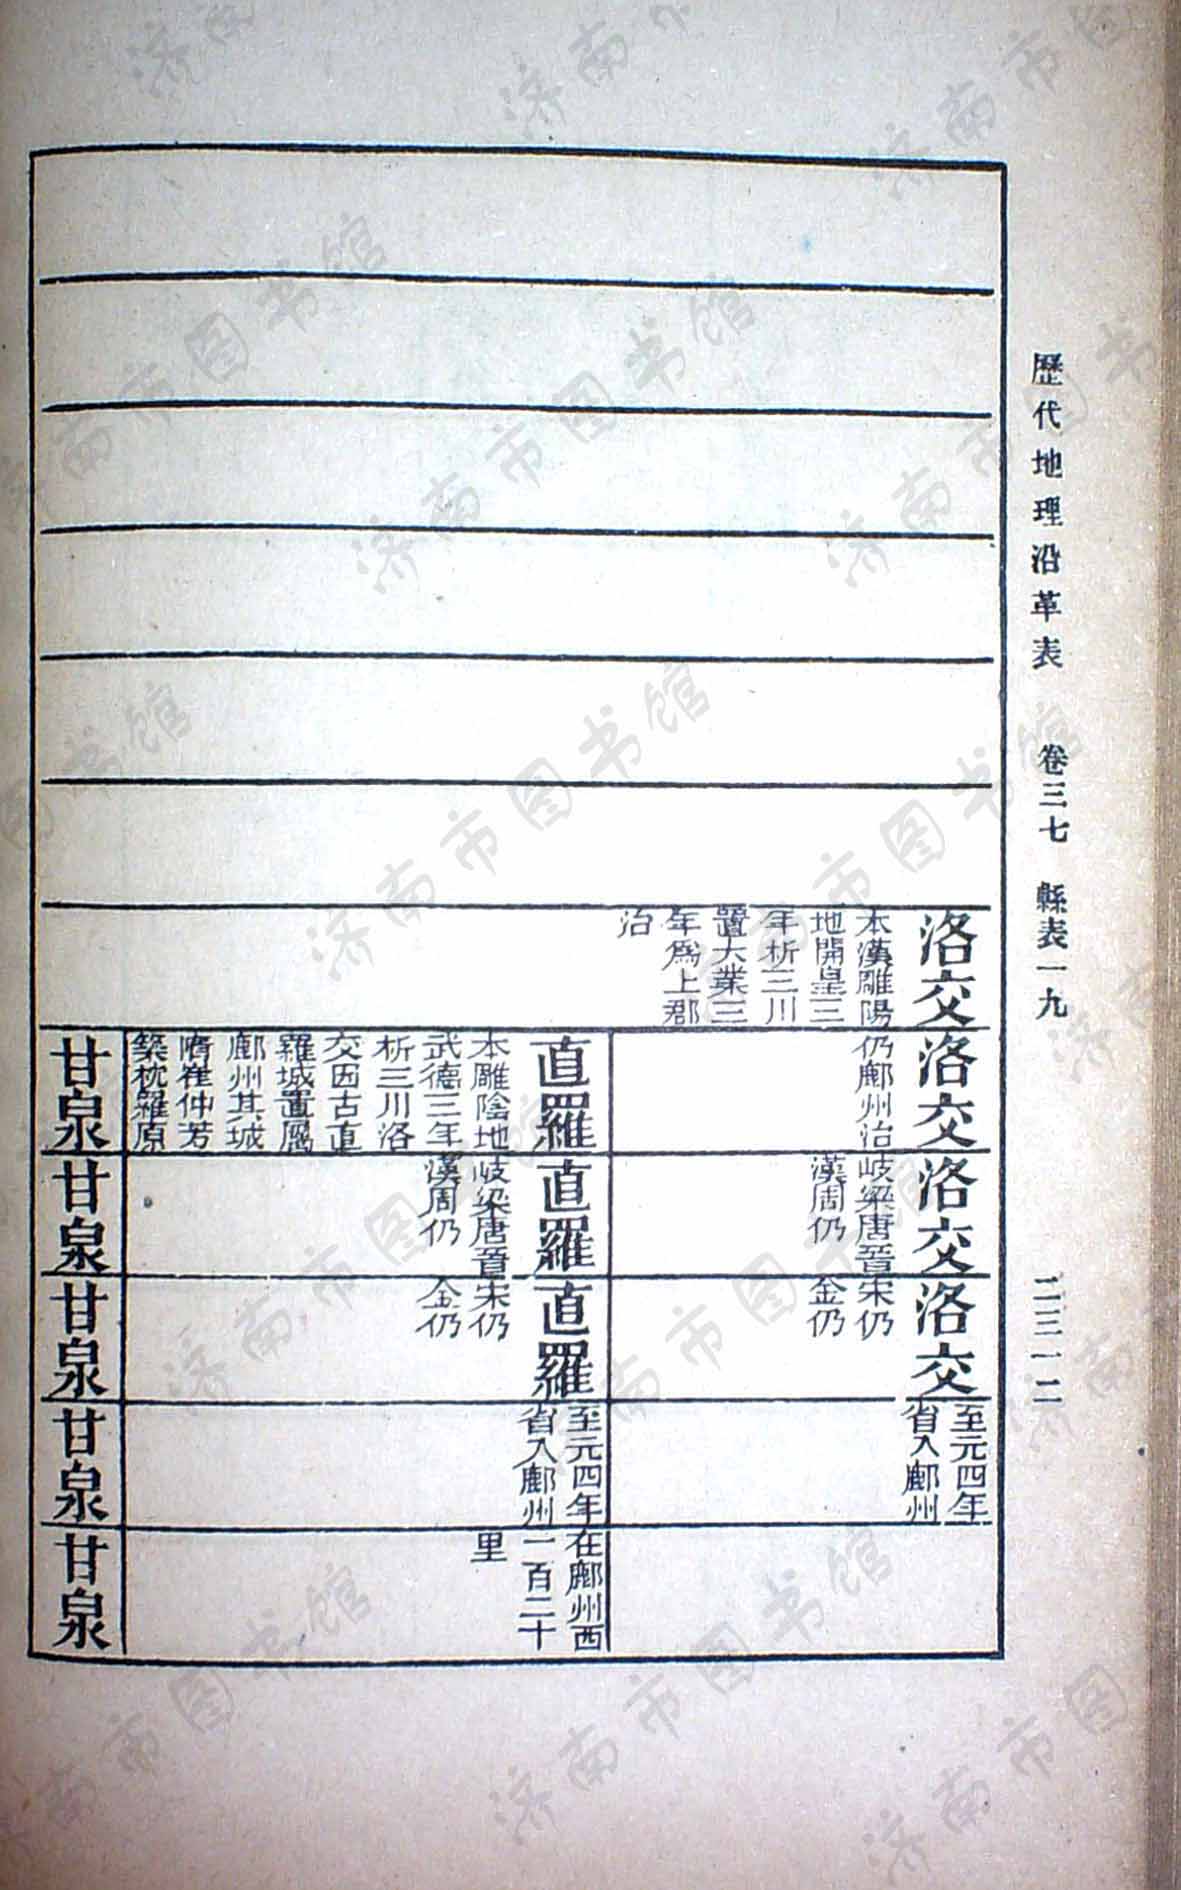 歷代地理沿革表 卷三七 縣表一九 二三一二
洛交
本漢雕陽
地開皇三
年析三川
置大業三
年爲上郡
治
洛交
仍鄜州治
洛交
岐梁唐晉
漢周仍
洛交
宋仍
金仍
至元四年
省入鄜州
直羅
本雕陰地
武德三年
析三川洛
交因古直
羅城置屬
鄜州其城
隋崔仲芳
築枕羅原
直羅
岐梁唐晉
漢周仍
直羅
宋仍
金仍
至元四年
省入鄜州
在鄜州西
一百二十
里
甘泉
甘泉
甘泉
甘泉
甘泉
济南市图书馆